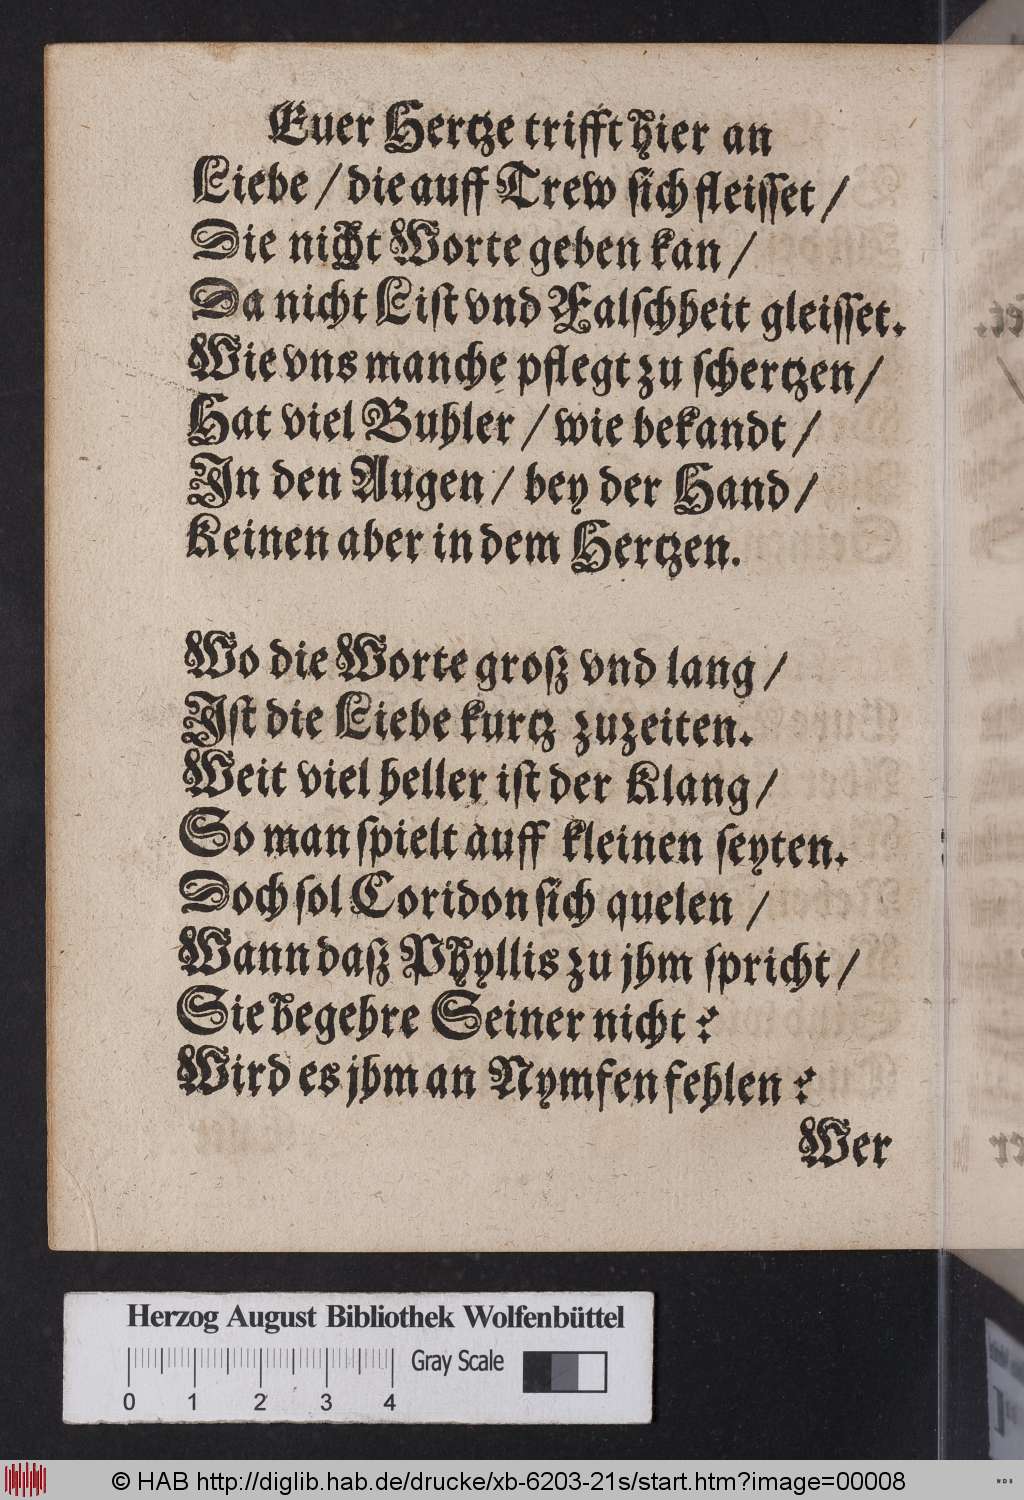 Euer Hertze trifft hier an
Liebe / die auff Trew sich fleisset /
Die nicht Worte geben kan /
Da nicht List vnd Falschheit gleisset.
Wie vns manche pflegt zu schertzen /
Hat viel Buhler / wie bekandt /
In den Augen / bey der Hand /
Keinen aber in dem Hertzen.
Wo die Worte groß vnd lang /
Ist die Liebe kurtz zuzeiten.
Weit viel heller ist der Klang /
So man spielt auff kleinen seyten.
Doch sol Coridon sich quelen /
Wann daß Phyllis zu jhm spricht /
Sie begehre Seiner nicht?
Wird es jhm an Nymfen fehlen?
Wer
Herzog August Bibliothek Wolfenbüttel
Gray Scale
0 1 2 3 4
© HAB http://diglib.hab.de/drucke/xb-6203-21s/start.htm?image=00008